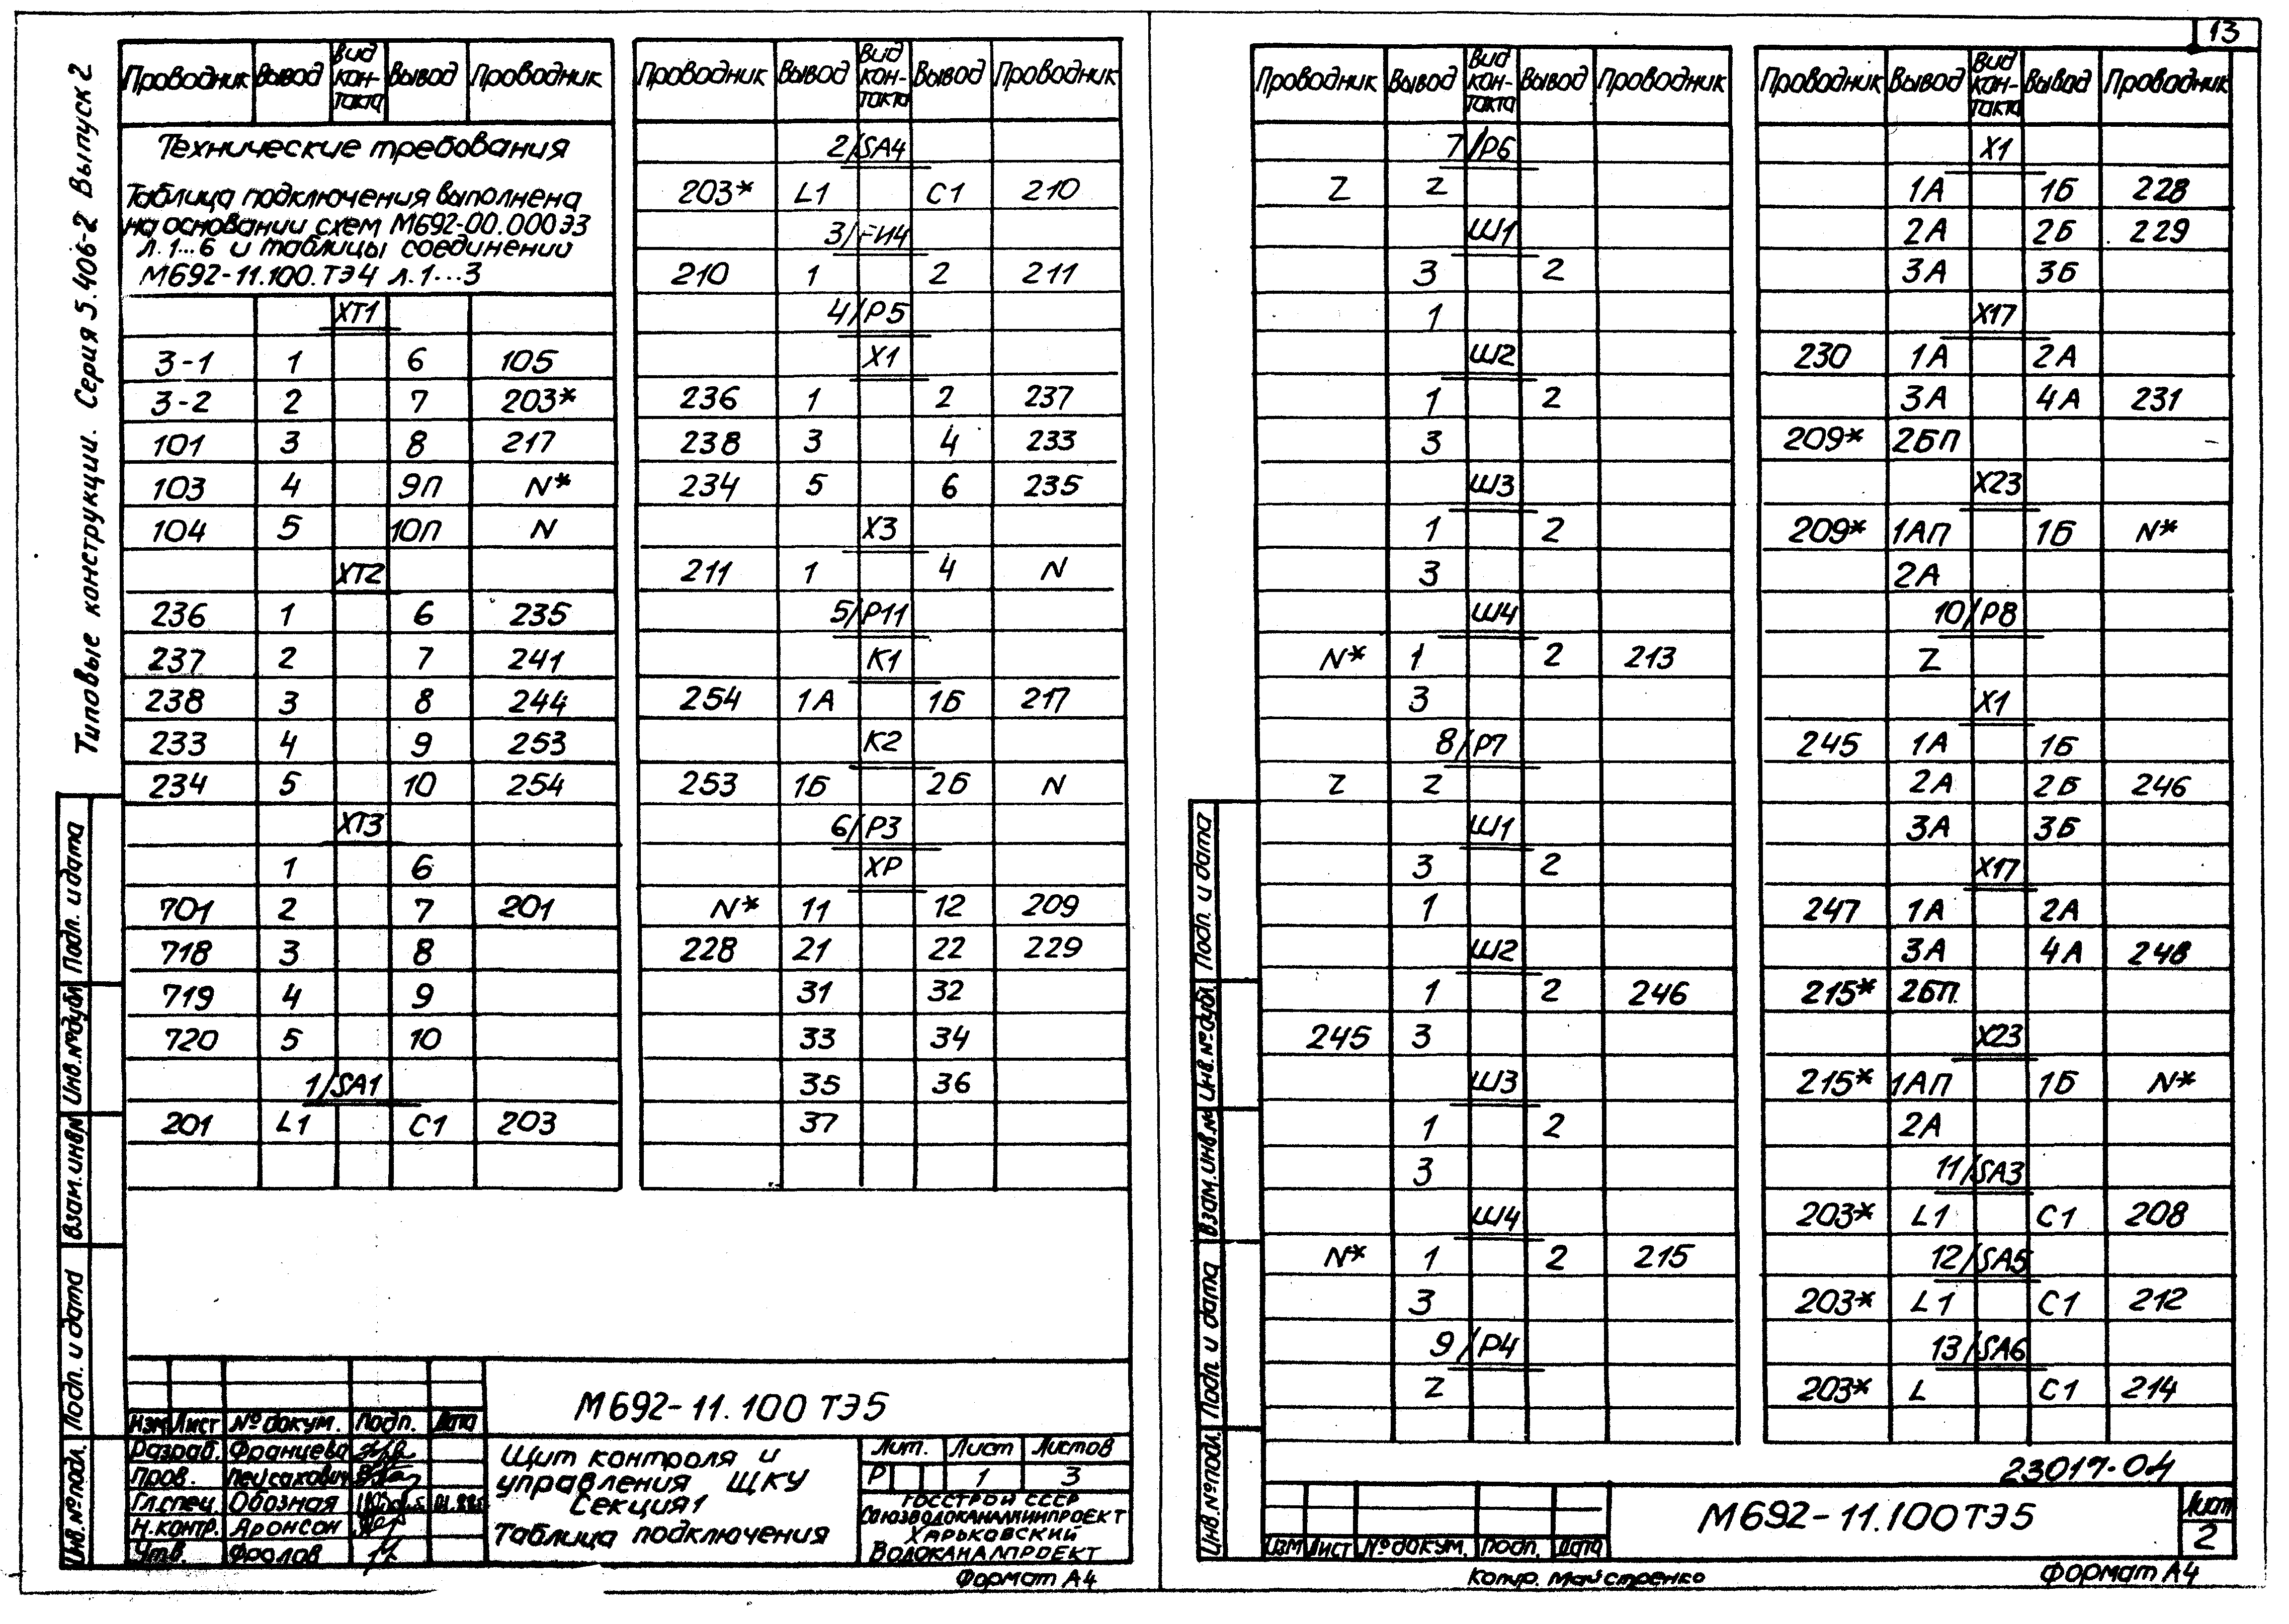 13
Типовые конструкции. Серия 5.406-2 Выпуск 2
Проводник Вывод Вид контакта Вывод Проводник
Технические требования
Таблица подключения выполнена
на основании схем М692-00.000Э3
л.1...6 и таблицы соединений
М692-11.100.ТЭ4 л.1...3
XT1
3-1 1 6 105
3-2 2 7 203*
101 3 8 217
103 4 9П N*
104 5 10П N
XT2
236 1 6 235
237 2 7 241
238 3 8 244
233 4 9 253
234 5 10 254
XT3
1 6
701 2 7 201
718 3 8
719 4 9
720 5 10
1/SA1
201 L1 C1 203
Проводник Вывод Вид кон-такта Вывод Проводник
2/SA4
203* L1 C1 210
3/
210 1 2 211
4/P5
X1
236 1 2 237
238 3 4 233
234 5 6 235
X3
211 1 4 N
5/P11
K1
254 1А 1Б 217
K2
253 1Б 2Б N
6/P3
XP
N* 11 12 209
228 21 22 229
31 32
33 34
35 36
37
Изм Лист № докум. Подп. Дата
Разраб. Францева
Пров. Пейсахович
Гл.спец. Обозная
Н.контр. Аронсон
Утв. Фролов
М692-11.100 ТЭ5
Щит контроля и
управления ЩКУ
Секция 1
Таблица подключения
Лит. Лист Листов
Р 1 3
Госстрой СССР
Союзводоканалниипроект
Харьковский
Водоканалпроект
Формат А4
Инв.№подл. Подп. и дата Взам.инв.№ Инв.№дубл. Подп. и дата
Проводник Вывод Вид кон-такта Вывод Проводник
7/P6
Z Z
Ш1
3 2
1
Ш2
1 2
3
Ш3
1 2
3
Ш4
N* 1 2 213
3
8/P7
Z Z
Ш1
3 2
1
Ш2
1 2 246
245 3
Ш3
1 2
3
Ш4
N* 1 2 215
3
9/P4
Z
Проводник Вывод Вид кон-такта Вывод Проводник
X1
1А 1Б 228
2А 2Б 229
3А 3Б
X17
230 1А 2А
3А 4А 231
209* 2БП
X23
209* 1АП 1Б N*
2А
10/P8
Z
X1
245 1А 1Б
2А 2Б 246
3А 3Б
X17
247 1А 2А
3А 4А 248
215* 2БП
X23
215* 1АП 1Б N*
2А
11/SA3
203* L1 C1 208
12/SA5
203* L1 C1 212
13/SA6
203* L C1 214
23017-04
Изм Лист № докум. Подп. Дата
М692-11.100ТЭ5
Лист
2
Копир. Майстренко
Формат А4
Инв.№подл. Подп. и дата Взам.инв.№ Инв.№дубл. Подп. и дата